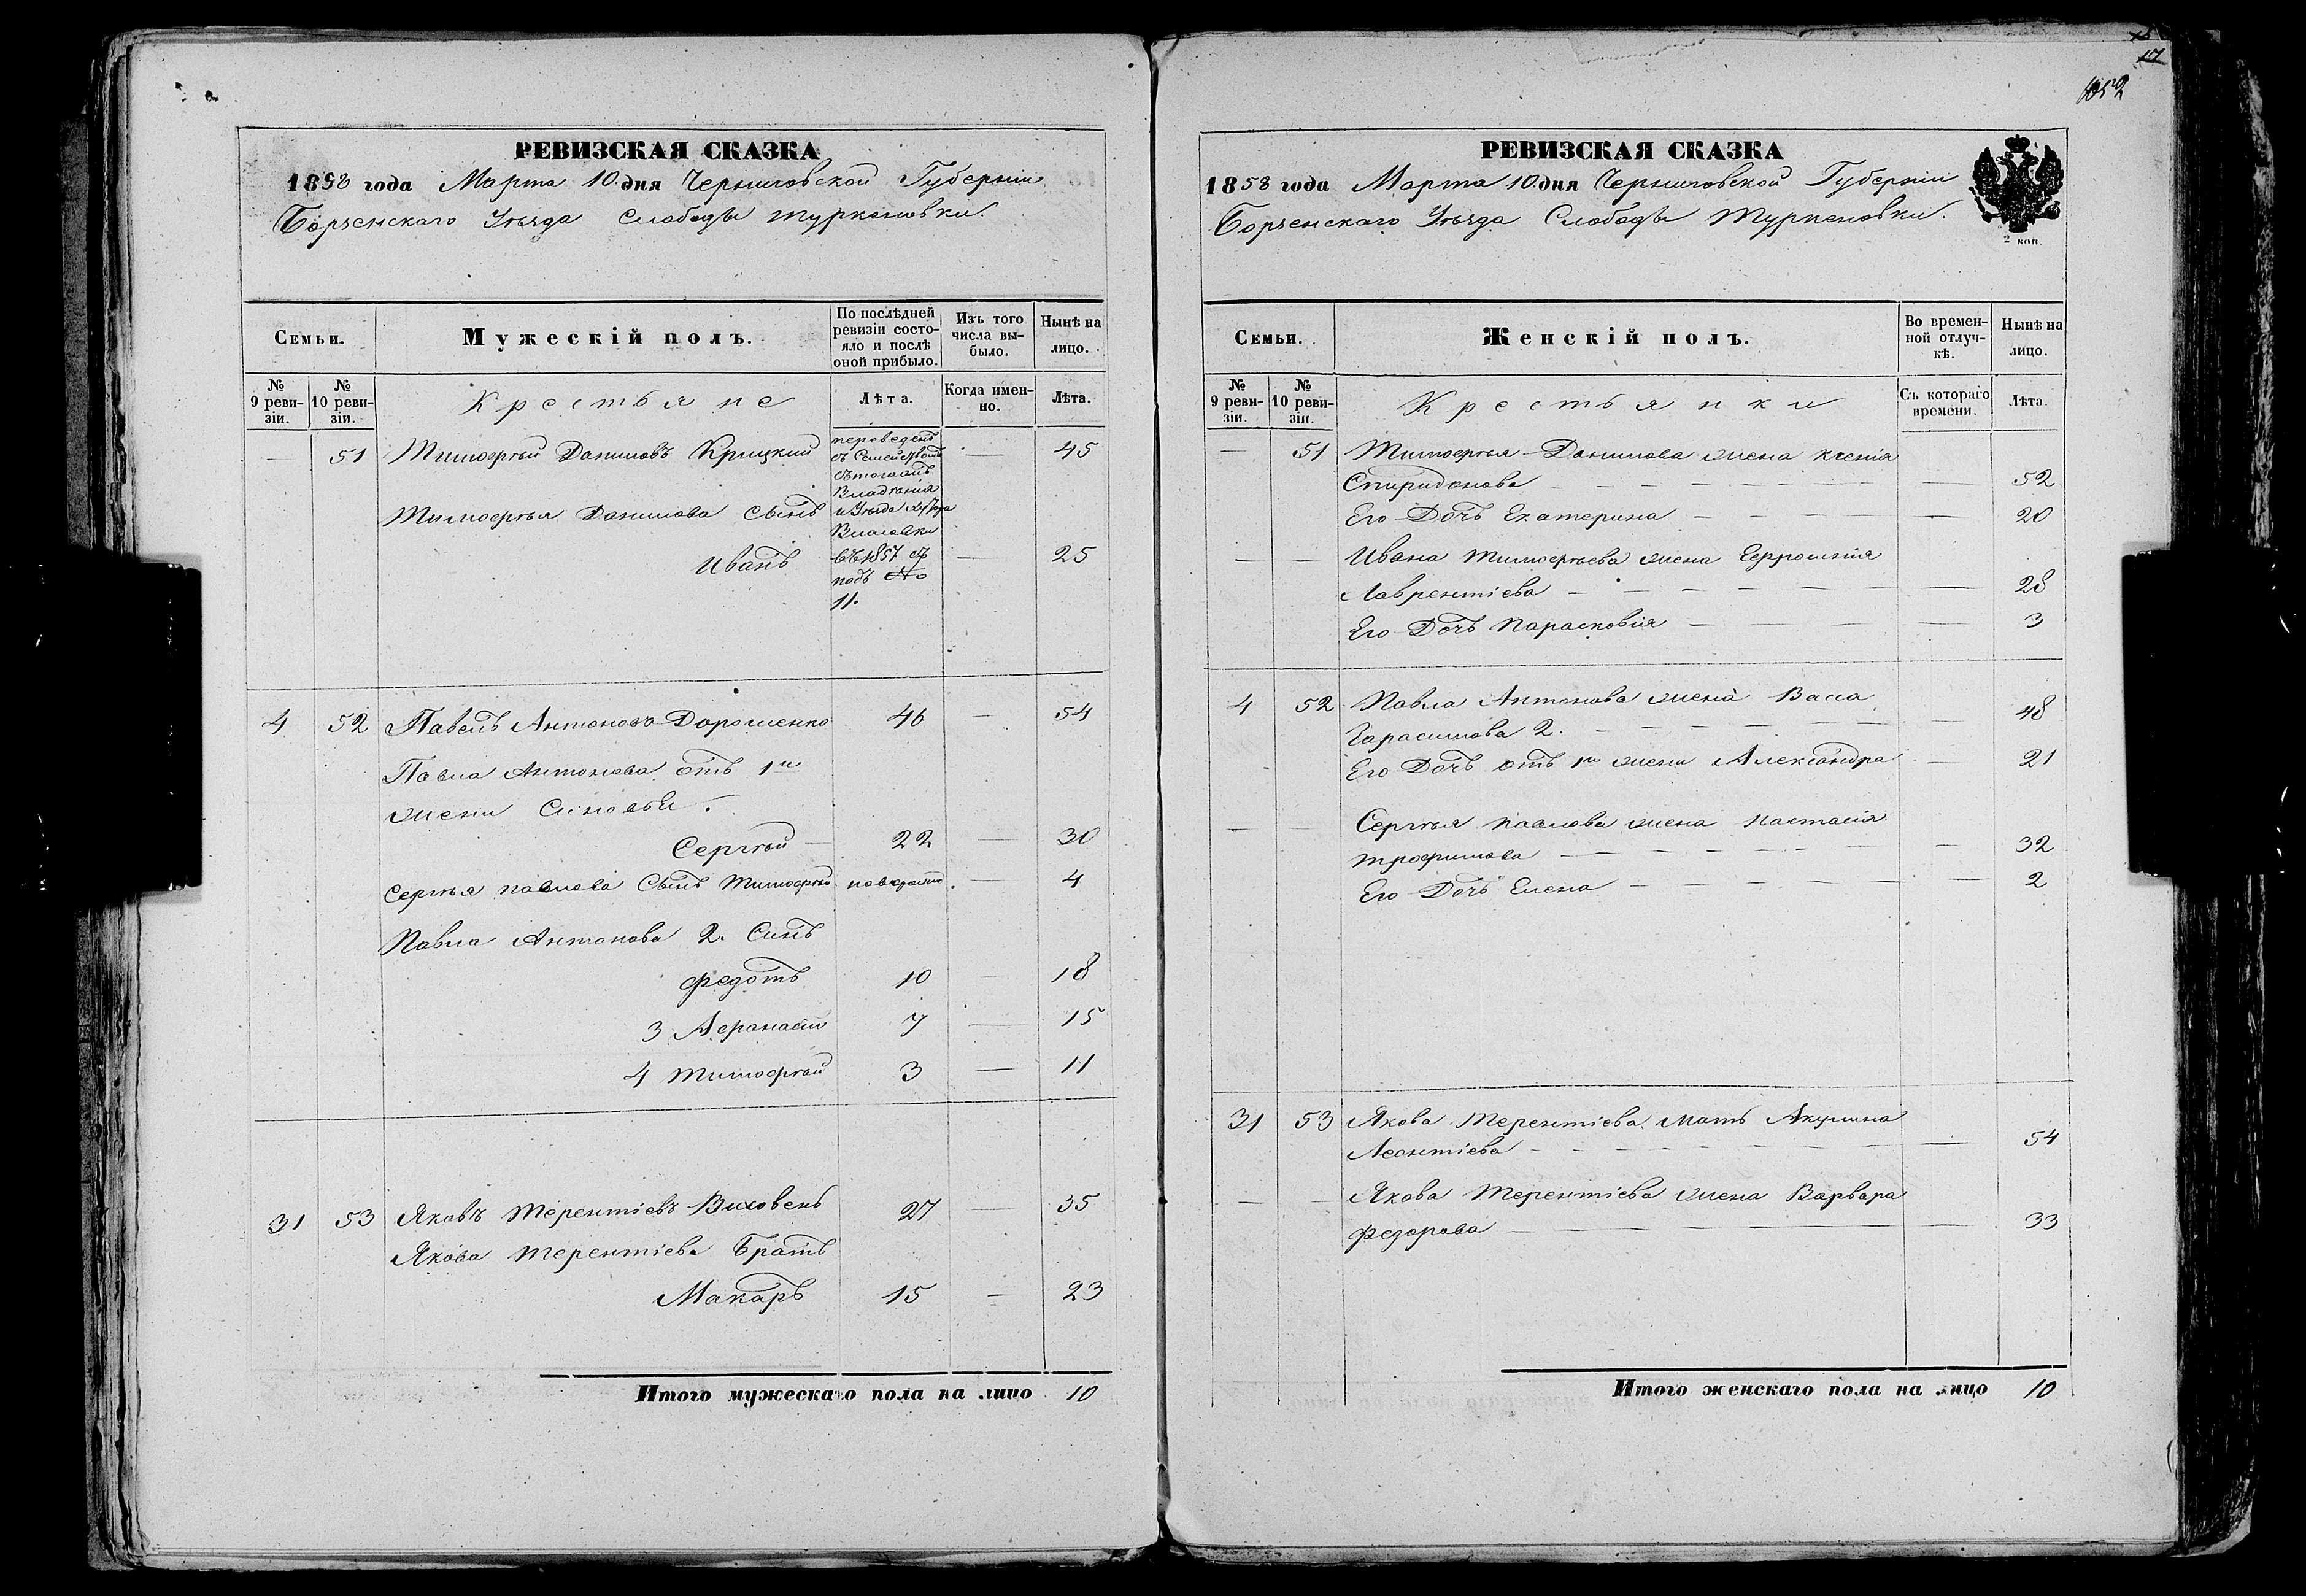 РЕВИЗСКАЯ СКАЗКА
1858 года Марта 10 дня Черниговской Губерніи
Борзенскаго Уѣзда Слободы Туркеновки.
Семьи.
Мужескій полъ.
По послѣдней ревизіи состояло и послѣ оной прибыло.
Изъ того числа выбыло.
Нынѣ на лицо.
№ 9 ревизіи.
№ 10 ревизіи.
Крестьяне
Лѣта.
Когда именно.
Лѣта.
— 51 Тимофѣй Даниловъ Крицкий — 45
переведенъ
съ Семействомъ
Владѣнія
и Уѣзда
въ 1857
подъ №
11.
Тимофѣя Данилова Сынъ
Иванъ — 25
4 52 Павелъ Антоновъ Дорошенко 46 — 54
Павла Антонова отъ 1й
жени Синовьи.
Сергѣй 22 — 30
Сергѣя Павлова Сынъ Тимофѣй — 4
Павла Антонова 2. Синъ
Федотъ 10 — 18
3 Афанасій 7 — 15
4 Тимофѣй 3 — 11
31 53 Яковъ Терентіевъ Виховень 27 — 35
Якова Терентіева Братъ
Макаръ 15 — 23
Итого мужескаго пола на лицо 10
17
РЕВИЗСКАЯ СКАЗКА
1858 года Марта 10 дня Черниговской Губерніи
Борзенскаго Уѣзда Слободы Туркеновки.
2 коп.
Семьи.
Женскій полъ.
Во временной отлучкѣ.
Нынѣ на лицо.
№ 9 ревизіи.
№ 10 ревизіи.
Крестьянки
Съ котораго времени.
Лѣта.
— 51 Тимофѣя Данилова жена Ксенія
Спиридонова — 52
Его Дочь Екатерина — 20
— — Ивана Тимофѣева жена Ефросинія
Лаврентіева — 28
Его Дочь Парасковія — 3
4 52 Павла Антонова жена Васса
Гарасимова 2. — 48
Его Дочь отъ 1й жени Александра — 21
— — Сергѣя Павлова жена Настасія
Трофимова — 32
Его Дочь Елена — 2
31 53 Якова Терентіева Мать Акулина
Леонтіева — 54
— — Якова Терентіева жена Варвара
Федорова — 33
Итого женскаго пола на лицо 10